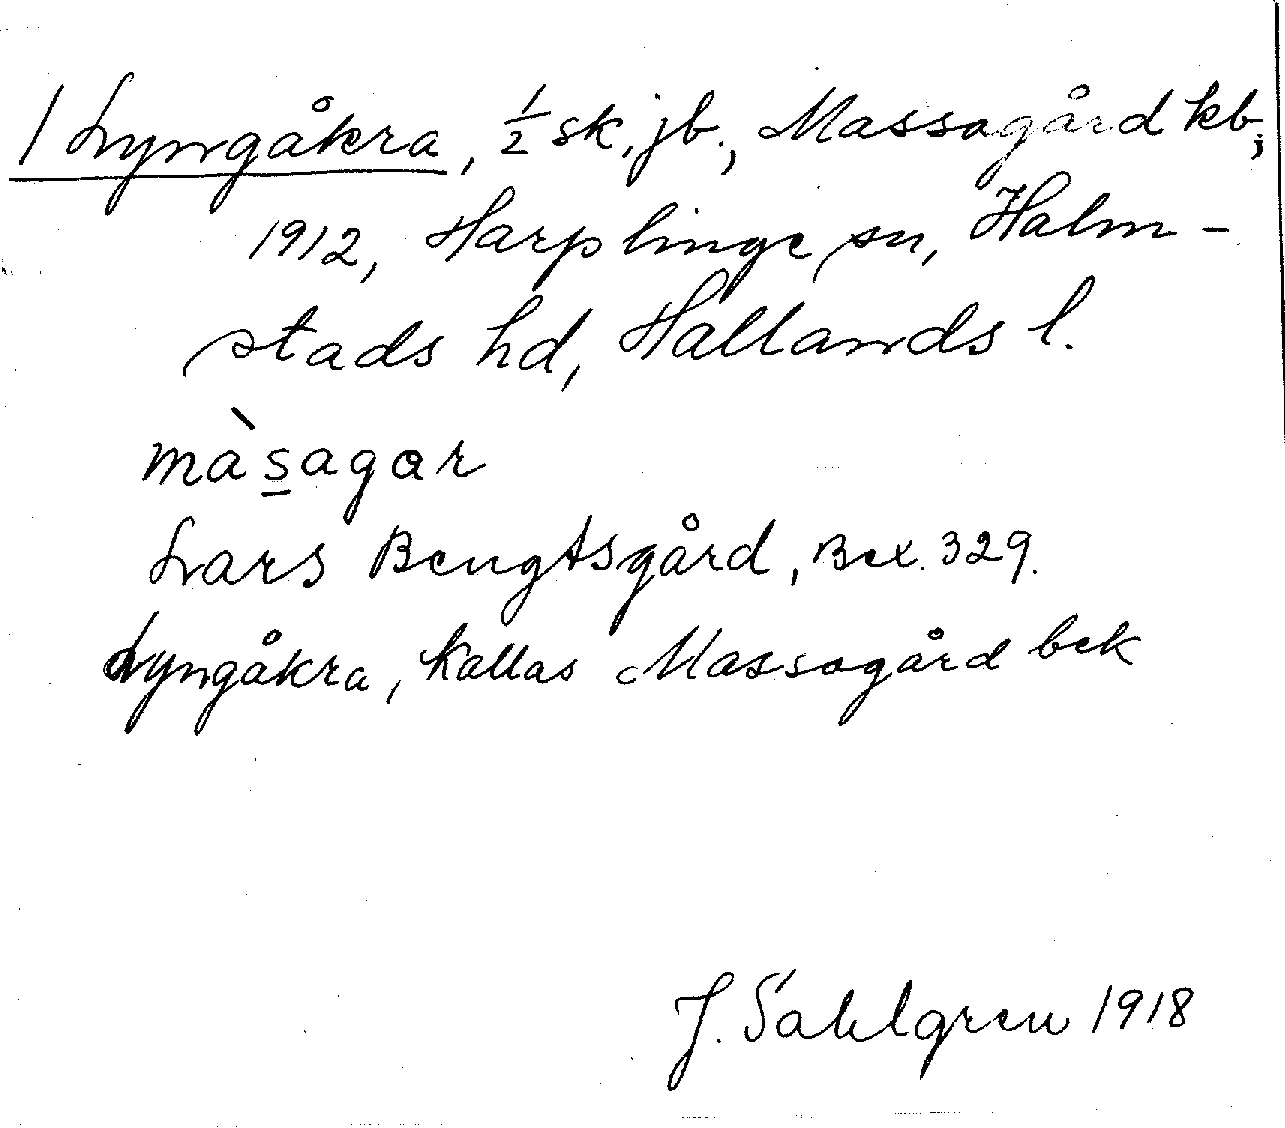 1 Lyngåkra, ½ sk, jb., Massagård kb,;
1912, Harplinge sn, Halm-
stads hd, Hallands l.
màsagar
Lars Bengtsgård, Bex. 329.
Lyngåkra, kallas Massagård bek
J. Sahlgren 1918